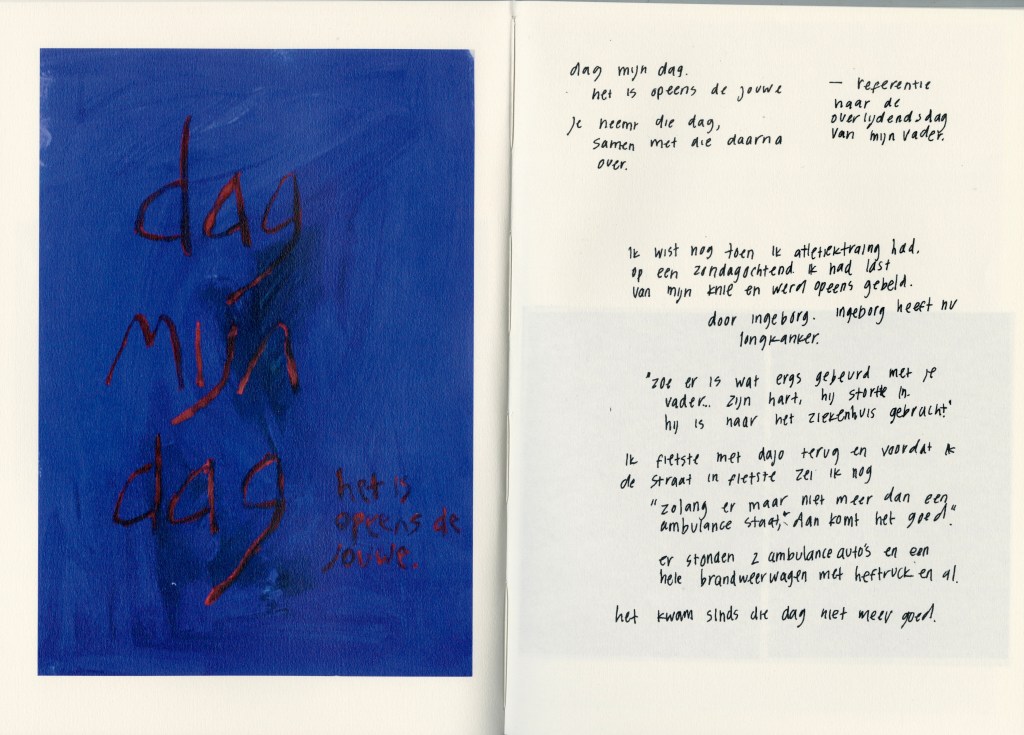 dag
mijn
dag
het is
opeens de
jouwe.
dag mijn dag.
het is opeens de jouwe
je neemt die dag,
samen met die daarna
over.
— referentie
naar de
overlijdensdag
van mijn vader.
Ik wist nog toen ik atletiektraing had.
op een zondagochtend. Ik had last
van mijn knie en werd opeens gebeld.
door Ingeborg. Ingeborg heeft nu
longkanker.
"Zoe er is wat ergs gebeurd met je
vader.. zijn hart, hij stortte in.
hij is naar het ziekenhuis gebracht"
Ik fietste met dajo terug en voordat ik
de straat in fietste zei ik nog
"zolang er maar niet meer dan een
ambulance staat, dan komt het goed"
er stonden 2 ambulance auto's en een
hele brandweerwagen met heftruck en al.
het kwam sinds die dag niet meer goed.